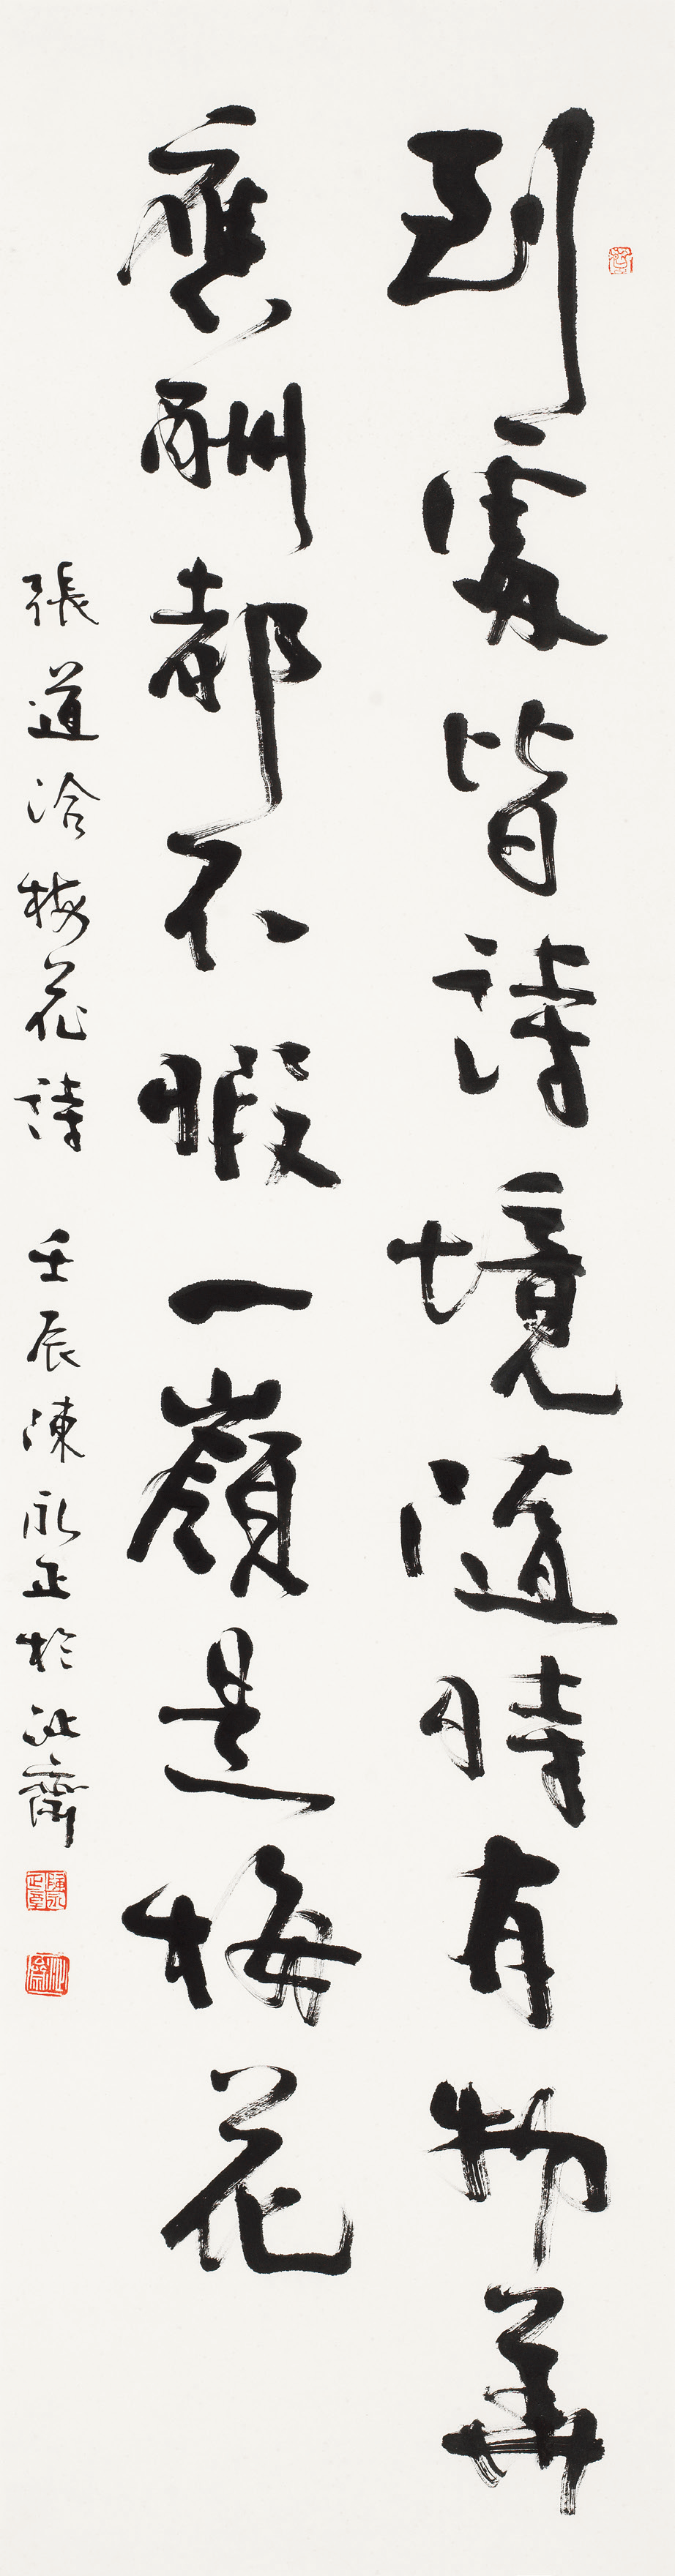 到處皆詩境隨時有物華
應酬都不暇一嶺是梅花
張道洽梅花詩 壬辰陳永正於沚齋